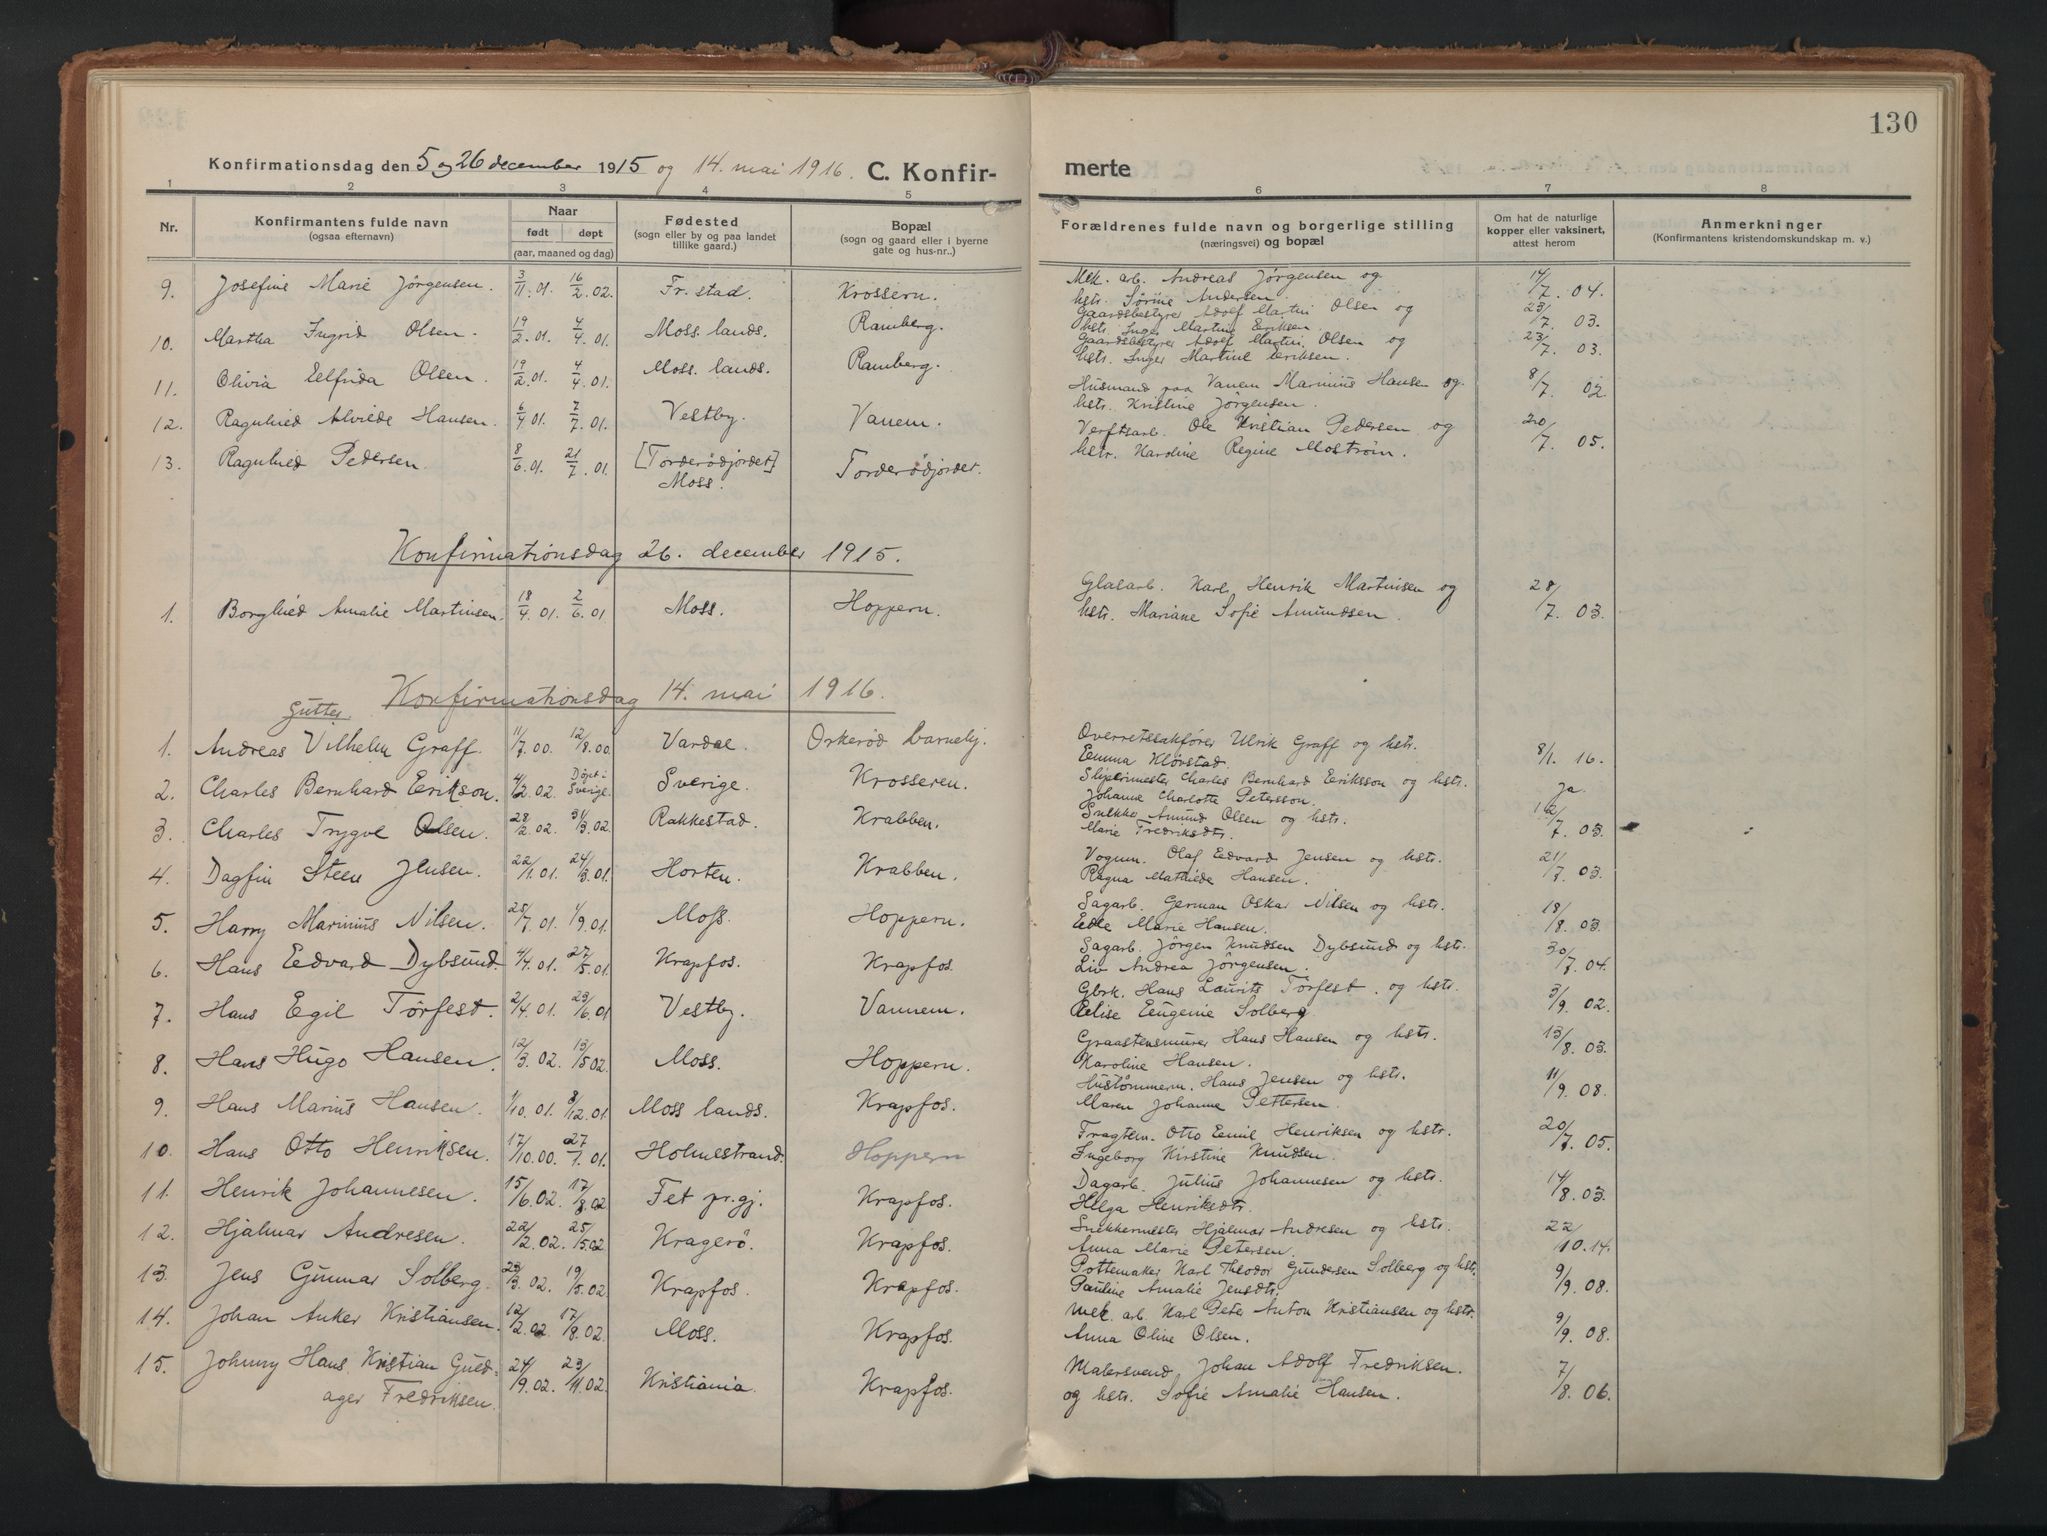 130
Konfirmationsdag den 5 og 26 december 1915 og 14. mai 1916. C. Konfir-
merte
1 2 3 4 5 6 7 8
Nr.
Konfirmantens fulde navn
(ogsaa efternavn)
Naar
født døpt
(aar, maaned og dag)
Fødested
(sogn eller by og paa landet
tillike gaard.)
Bopæl
(sogn og gaard eller i byerne
gate og hus-nr..)
Forældrenes fulde navn og borgerlige stilling
(næringsvei) og bopæl
Om hat de naturlige
kopper eller vaksinert,
attest herom
Anmerkninger
(Konfirmantens kristendomskundskap m. v.)
9. Josefine Marie Jörgensen. 3/11.01. 16/2.02. Fr.stad. Krossern.
Mek. arb. Andreas Jørgensen og 14/7. 04.
hstr. Sörine Andersen.
10. Martha Ingrid Olsen. 19/2.01. 4/4.01. Moss lands. Ramberg.
Gaardsbestyrer Adolf Martin Olsen og 23/7. 03.
hstr. Inger Martine Eriksen.
11. Olivia Elfrida Olsen. 19/2.01. 4/4.01. Moss. lands. Ramberg.
Gaardsbestyrer Adolf Martin Olsen og 23/7. 03.
hstr. Inger Martine Eriksen.
12. Ragnhild Alvilde Hansen. 6/4.01. 7/7.01. Vestby. Vanem.
Husmand paa Vanem Marinius Hansen og 8/7. 02.
hstr. Kristine Jörgensen.
13. Ragnhild Pedersen. 8/6.01. 21/7.01. [Torderödjordet] Torderödjordet.
Moss.
Verftsarb. Ole Kristian Pedersen og 20/7. 05.
hstr. Karoline Regine Moström.
Konfirmationsdag 26. december 1915.
1. Borghild Amalie Martinsen. 18/4.01. 2/6.01 Moss. Hoppern.
Glasarb. Karl Henrik Martinsen og 28/7. 03.
hstr. Mariane Sofie Amundsen.
Konfirmationsdag 14. mai 1916.
Gutter.
1. Andreas Vilhelm Graff. 11/7.00. 12/8.00. Vardal. Orkeröd barnehj.
Overretssakförer Ulrik Graff og hstr. 8/1. 16.
Emma Klövstad.
2. Charles Bernhard Erikson. 4/2.02. Döpt i Sverige. Sverige. Krosseren.
Sliperimester Charles Bernhard Eriksson og hstr. Ja.
Johanne Charlotte Petersson.
3. Charles Trygve Olsen. 28/2.02. 31/3.02. Rakkestad. Krabben.
Snekker Amund Olsen og hstr. 12/7. 03.
Marie Fredriksdtr.
4. Dagfin Steen Jensen. 22/1.01. 24/3.01. Horten. Krabben.
Vognm. Olaf Edvard Jensen og hstr. 21/7. 03.
Ragna Mathilde Hansen.
5. Harry Marinius Nilsen. 25/7.01. 1/9.01. Moss. Hoppern.
Sagarb. German Oskar Nilsen og hstr. 18/8. 03.
Edle Marie Hansen.
6. Hans Edvard Dybsund. 4/4.01. 27/5.01. Krapfos. Krapfos.
Sagarb. Jörgen Knudsen Dybsund og hstr. 30/7. 04.
Liv Andrea Jörgensen.
7. Hans Egil Torfest. 2/4.01. 23/6.01 Vestby. Vannem.
Gbrk. Hans Laurits Torfest. og hstr. 3/9. 02.
Elise Eugenie Solberg.
8. Hans Hugo Hansen. 12/3.02. 13/5.02. Moss. Hoppern.
Graastensmurer Hans Hansen og hstr. 13/8. 03.
Karoline Hansen.
9. Hans Marius Hansen. 1/10.01. 8/12.01. Moss lands. Krapfos.
Hustömmerm. Hans Jensen og hstr. 11/9. 08.
Maren Johanne Pettersen.
10. Hans Otto Henriksen. 17/10.00. 27/1.01. Holmestrand. Hoppern
Fragtem. Otto Emil Henriksen og hstr. 20/7. 05.
Ingeborg Kirstine Knudsen.
11. Henrik Johannesen. 15/6.02. 17/8.02 Fet pr.gj. Krapfos.
Dagarb. Julius Johannesen og hstr. 14/8. 03.
Helga Henriksdtr.
12. Hjalmar Andresen. 22/2.02. 25/5.02 Kragerö. Krapfos.
Snekkermester Hjalmar Andresen og hstr. 22/10.14.
Anna Marie Petersen.
13. Jens Gunnar Solberg. 23/3.02. 19/5.02 Krapfos. Krapfos.
Pottemaker Karl Theodor Gundersen Solberg og hstr. 9/9. 08.
Pauline Amalie Jensdtr.
14. Johan Anker Kristiansen. 12/2.02. 17/8.02. Moss. Krapfos.
Mek. arb. Karl Peter Anton Kristiansen og hstr. 9/9. 08.
Anna Oline Olsen.
15. Johnny Hans Kristian Guld-
ager Fredriksen. 24/9.02. 23/11.02. Kristiania. Krapfos.
Malersvend Johan Adolf Fredriksen. 7/8. 06.
og hstr. Sofie Amalie Hansen.